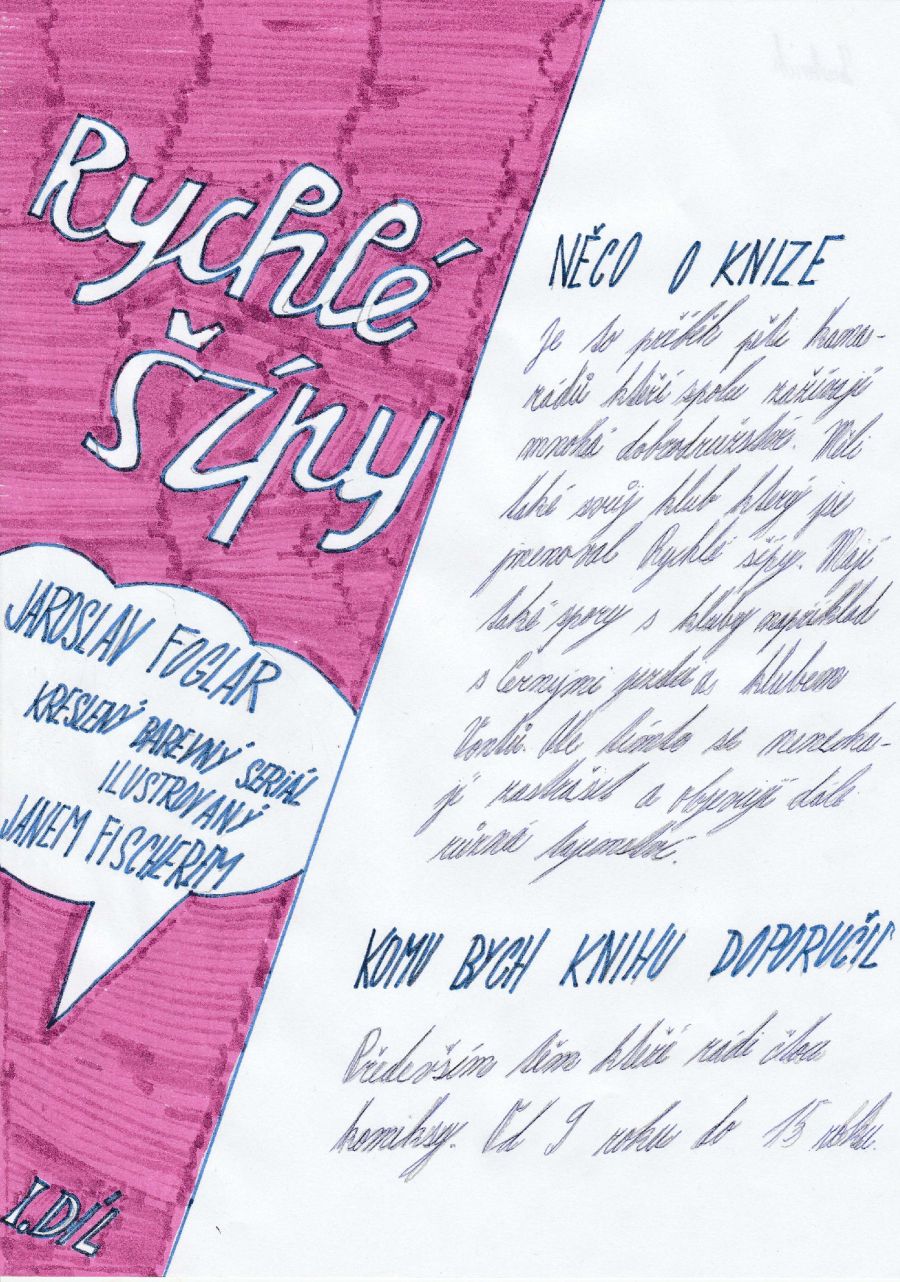 Rychlé
Šípy
JAROSLAV FOGLAR
KRESLENÝ BAREVNÝ SERIÁL
ILUSTROVANÝ
JANEM FISCHEREM
I. DÍL
NĚCO O KNIZE
Je to příběh pěti kama-
rádů kteří spolu zažívají
mnohá dobrodružství. Měli
také svůj klub který se
jmenoval Rychlé šípy. Mají
také spory s kluby například
s Černými jezdci a s klubem
Vontů. Ale tímto se nenecha-
jí zastrašit a objevují dále
různá tajemství.
KOMU BYCH KNIHU DOPORUČIL
Především těm kteří rádi čtou
komiksy. Od 9 roku do 15 roku.